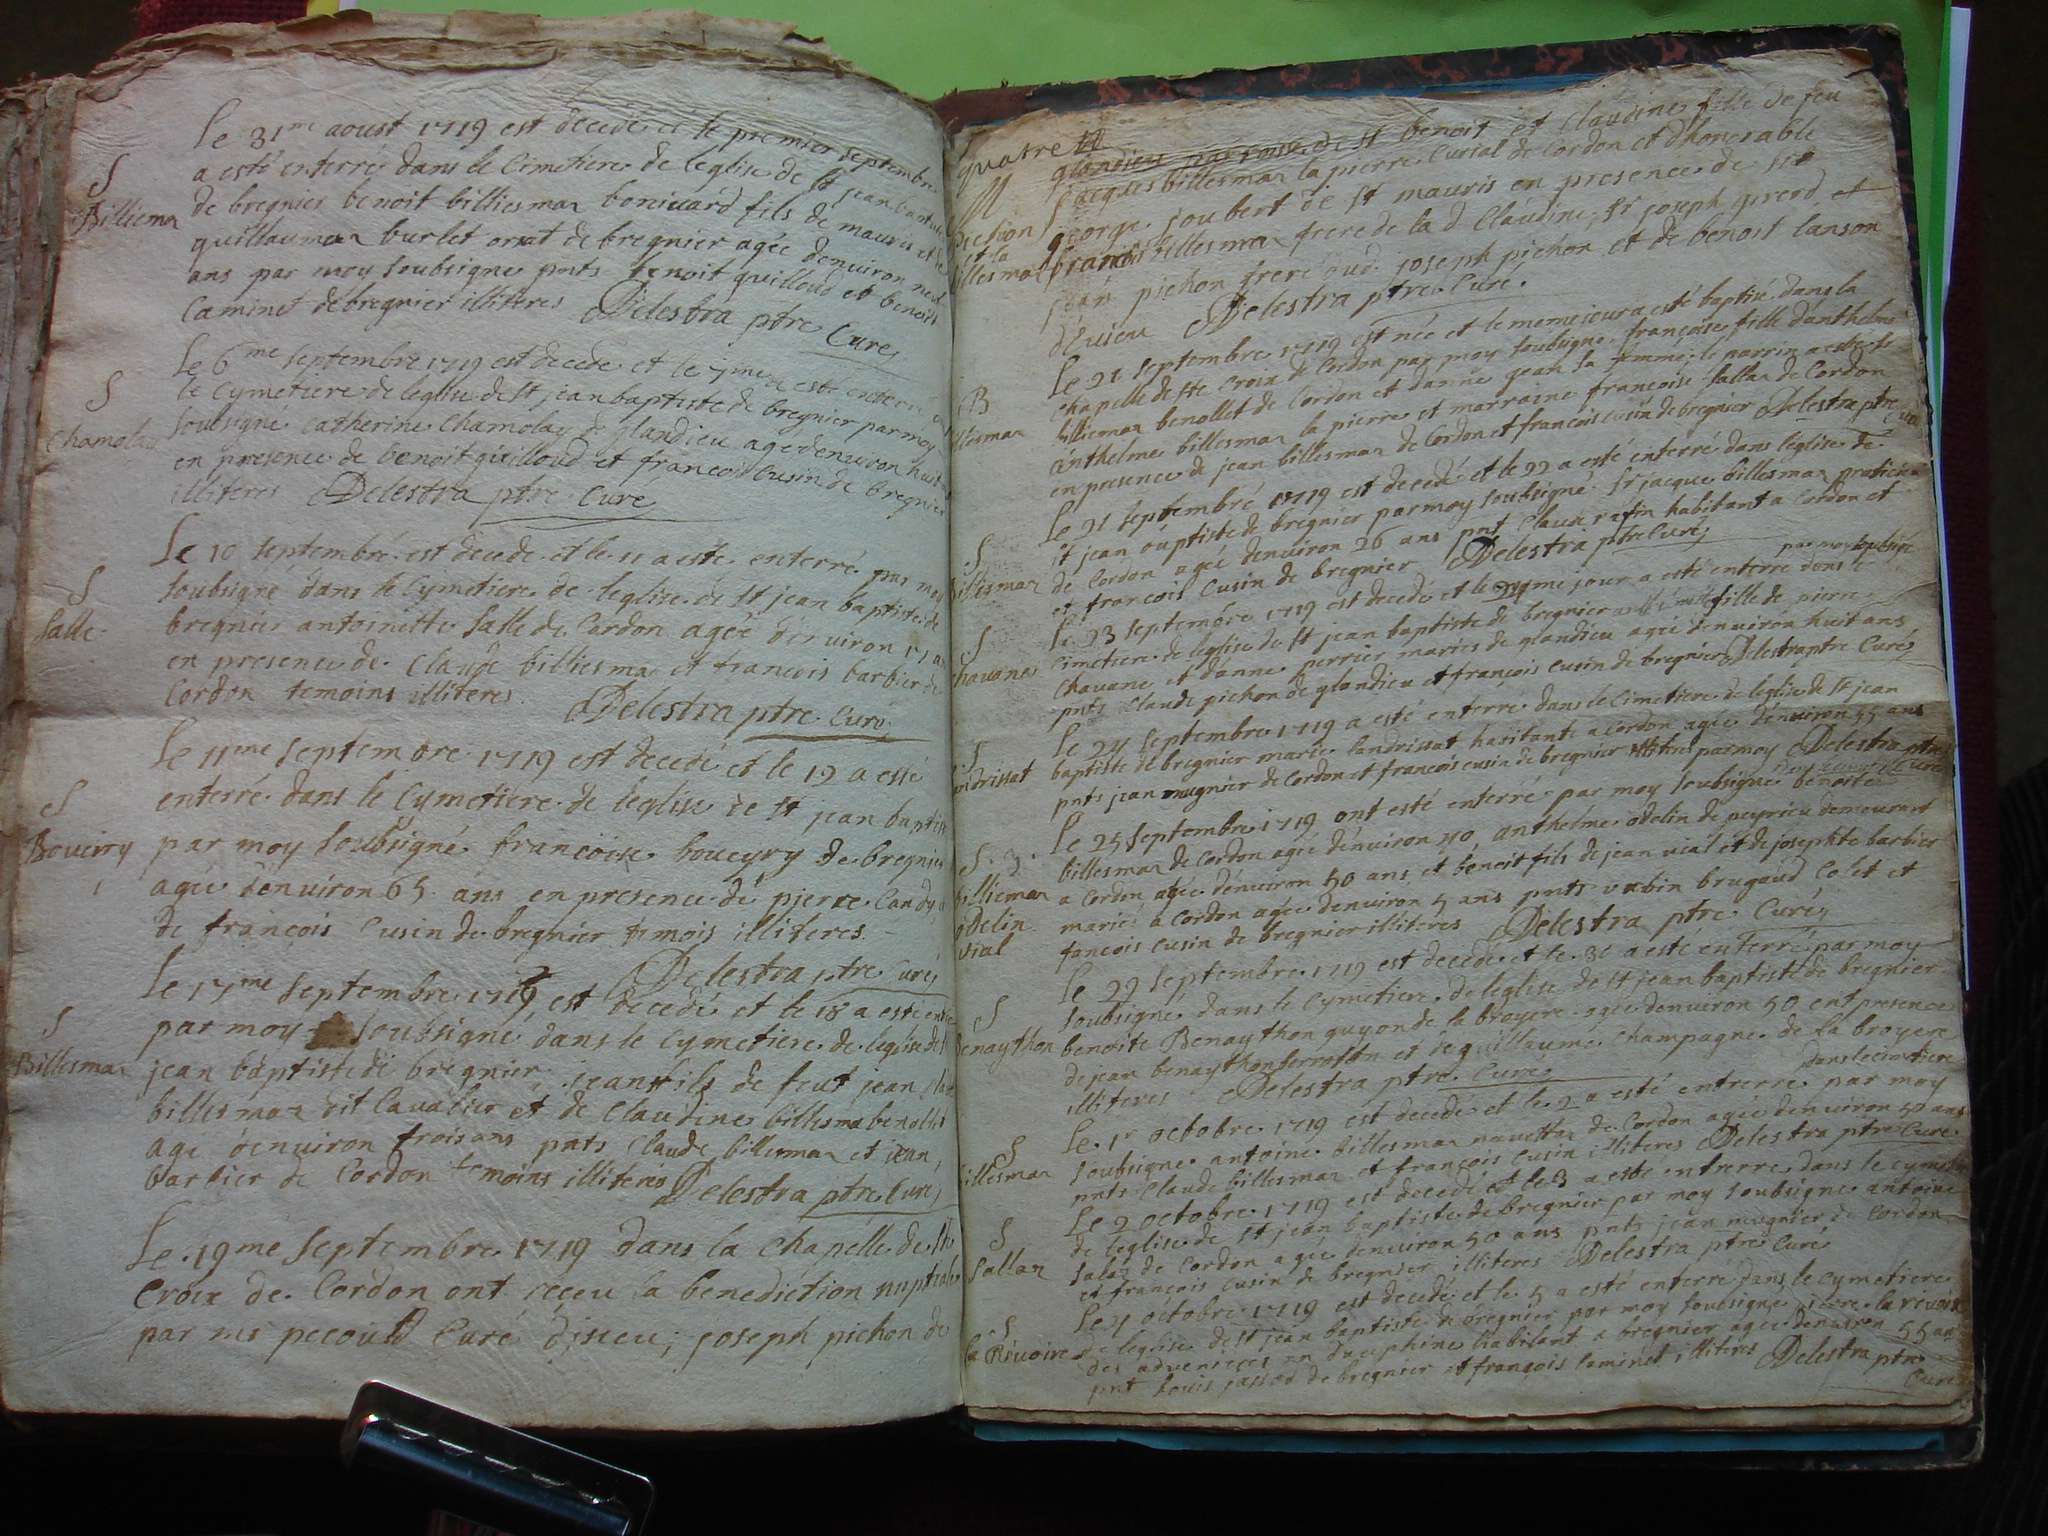 Le 31me aoust 1719 est decedé et le premier septembre
a esté enterré dans le Cimetiere de leglise de st jean baptiste
S
Billiema
de bregnier benoit billiesmaz bonivard fils de mauris et de
guillaumaz burlet orsat de bregnier agée denviron neuf
ans par moy soubsigne pnts benoit guilloud et benoist
Caminet de bregnier illiteres Delestra ptre Curé
Le 6me septembre 1719 est decede et le 7me a esté enterré
le Cymetiere de leglise de st jean baptiste de bregnier par moy
S
Chamolay
soubsigné Catherine Chamolay de glandieu agée denviron huit
en presence de benoit guilloud et francois Cusin de bregnier
illiteres Delestra ptre Curé
Le 10 septembre est decede et le 11 a este enterré par moy
S
Salle
soubsigné dans le Cymetiere de leglise de st jean baptiste de
bregnier antoinette Salle de Cordon agée denviron
en presence de Claude billiesma et francois barbier de
Cordon temoins illiteres Delestra ptre Curé
Le 11me septembre 1719 est decedé et le 12 a esté
S
Boveiry
enterré dans le Cymetiere de leglise de st jean baptiste
par moy soubsigné francoise boveyry de bregnier
agée denviron 65 ans en presence de pierre Candy
de francois Cusin de bregnier temois illiteres
Delestra ptre Curé
Le 17me septembre 1719 est decedé et le 18 a esté enterré
S
Billesmaz
par moy soubsigné dans le Cymetiere de leglise de st
jean baptiste de bregnier, jean fils de feut jean
billesmaz dit Cavalier et de Claudine billesma benollet
agé denviron trois ans pnts Claude billesmaz et jean
barbier de Cordon temoins illiteres Delestra ptre Curé
Le 19me septembre 1719 dans la Chapelle de ste
Croix de Cordon ont receu la benediction nuptiale
par mr pecould Curé disieu, joseph pichon de
quatre
M
glandieu parroisse de st benoit et Claudine fille de feu
jacques billesmaz la pierre Curial de Cordon et dhonorable
pichon
et la
billesmaz
george joubert de st mauris en presence de sr
francois billesmaz frere de la d Claudine, sr joseph girerd et
jean pichon frere dud joseph pichon et de benoit lanson
disieu Delestra ptre Curé
Le 21 septembre 1719 est née et le meme jour a esté baptisé dans la
B
billesmaz
chapelle de ste Croix de Cordon par moy soubsigne francoise fille danthelme
billiemaz benollet de Cordon et danne jean sa femme, le parrin a esté sr
anthelme billesmaz la pierre et marraine francoise sallaz de Cordon
en presence de jean billesmaz de Cordon et francois cusin de bregnier Delestra ptre Curé
Le 21 septembre 1719 est decedé et le 22 a esté enterré dans leglise de
S
billesmaz
st jean baptiste de bregnier par moy soubsigné sr jacque billesmaz praticien
de Cordon agée denviron 26 ans pnt Claude ratin habitant a Cordon et
et francois Cusin de bregnier Delestra ptre Curé
par moy soubsigné
S
Chavane
Le 23 septembre 1719 est decedé et le 24me jour a esté enterré dans le
Cimetiere de leglise de st jean baptiste de bregnier fille de pierre
Chavane et danne perrier mariés de glandieu agée denviron huit ans
pnts Claude pichon de glandieu et francois cusin de bregnier Delestra ptre Curé
S
landrissat
Le 24 septembre 1719 a esté enterré dans le Cimetiere de leglise de st jean
baptiste de bregnier marie landrissat habitante a Cordon agée denviron 55 ans
pnts jean mugnier de Cordon et francois cusin de bregnier illiteres par moy Delestra ptre
Curé
Le 25 septembre 1719 ont esté enterré par moy soubsigné benoite
S. 3.
billiemaz
odelin
vial
billesmaz de Cordon agée denviron 40, anthelme odelin de peyrieu demeurant
a Cordon agée denviron 50 ans et benoit fils de jean vial et de josephte barbier
mariés a Cordon agée denviron 5 ans pnts rubin brugaud Colet et
fancois cusin de bregnier illiteres Delestra ptre Curé
Le 29 septembre 1719 est decedé et le 30 a esté enterré par moy
S
benaython
soubsigné dans le Cymetiere de leglise de st jean baptiste de bregnier
benoite Benaython guyon de la broyere agée denviron 50 ent presence
de jean benaython et de guillaume Champagne de la broyere
illiteres Delestra ptre Curé
dans le cimetiere
Le 1r octobre 1719 est decedé et le 2 a esté enterré par moy
S
billesmaz
soubsigne antoine billesmaz navettaz de Cordon agée denviron 50 ans
pnts Claude billesmaz et francois cusin illiteres Delestra ptre Curé
Le 2 octobre 1719 est decedé et le 3 a esté enterré dans le cymetiere
S
Sallaz
de leglise de st jean baptiste de bregnier par moy soubsigne antoine
salaz de Cordon agée denviron 50 ans pnts jean mugnier de Cordon
et francois Cusin de bregnier illiteres Delestra ptre Curé
Le 4 octobre 1719 est decedé et le 5 a esté enterré dans le cymetiere
S
la Rivoire
de leglise de st jean baptiste de bregnier par moy soubsigne pierre la rivoire
des advenieres en dauphine habitant a bregnier agée denviron 55 ans
pnt louis jassod de bregnier et francois Caminet illiteres Delestra ptre
Curé